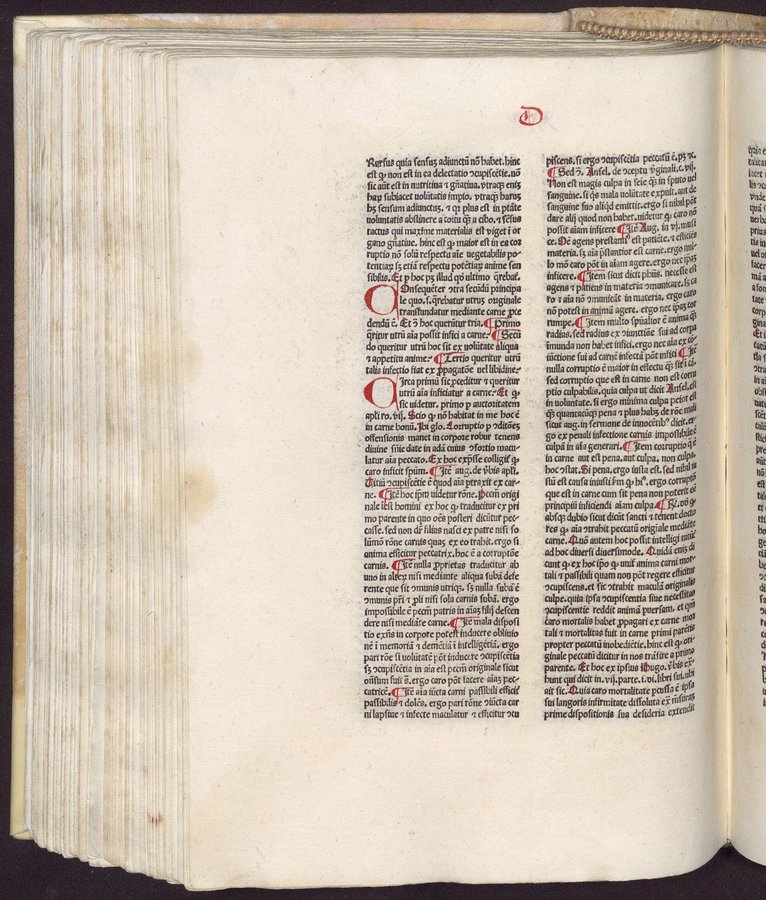 D
Rursus quia sensuꝫ adiunctū nō habet. hinc
est ꝙ non est in ea delectatio ɔcupiscētie. nō
sic aūt est in nutritiua ⁊ gn̄atiua. vtraqꝫ eniꝫ
haꝝ subiacet volūtatis impio. vtraqꝫ haruꝫ
hꝫ sensum adiunctuꝫ. ⁊ qꝛ plus est in ptāte
voluntatis abstinere a coitu qꝫ a cibo. ⁊ sēsus
tactus qui maxime materialis est viget ī or
gano gn̄atiue. hinc est ꝙ maior est in ea cor
ruptio nō solū respectu aīe vegetabilis po-
tentiaꝝ sꝫ etiā respectu potētiaꝝ anime sen
sibilis. Et p hoc pꝫ illud qd̄ vltimo q̄rebat̄.
COnsequēter vtra secūdū principa
le quo. s. q̄rebatur vtruꝫ originale
transfundatur mediante carne ꝓce
dendū ē. Et ꝫ hoc queruntur tria. ¶ Primo
q̄ritur vtrū aīa possit infici a carne. ¶ Secū
do queritur vtrū hoc sit ex volūtate aliqua
⁊ appetitu anime. ¶ Tertio queritur vtrū
talis infectio fiat ex ꝓpagatōe vel libidine.
CIrca primū sic ꝓceditur ⁊ queritur
vtrū aīa inficiatur a carne. Et ꝙ
sic videtur. primo p auctoritatem
apli ro. vij. Scio ꝙ nō habitat in me hoc ē
in carne bonū. Ibi glo. Corruptio p ɔditōeꝫ
offensionis manet in corpore robur tenens
diuine sn̄ie date in adā cuius ɔsortio macu-
latur aīa peccato. Ex hoc exp̄sse colligit̄ ꝙ
caro inficit spūm. ¶ Itē aug. de v̄bis apli.
Vitiū ɔcupiscētie ē quod aīa ꝓtraxit ex car-
ne. ¶ Itē hoc ip̄m videtur rōne. Pccm̄ origi
nale iēst homini ex hoc ꝙ traducitur ex pri
mo parente in quo oēs posteri dicūtur pec-
casse. sed non dē filius nasci ex patre nisi so
lūmō rōne carnis quaꝫ ex eo trahit. ergo si
anima efficitur peccatrix. hoc ē a corruptōe
carnis. ¶ Itē nulla ꝓprietas traducitur ab
vno in aliēꝫ nisi mediante aliqua subā defe
rente que sit ɔmunis vtriqꝫ. sꝫ nulla subā ē
ɔmunis pr̄i ⁊ ꝓli nisi sola carnis subā. ergo
impossibile ē pccm̄ patris in aīaꝫ filij descen
dere nisi mediāte carne. ¶ Itē mala disposi
tio exn̄s in corpore potest inducere obliuio
nē ī memoria ⁊ demētiā ī intelligētia. ergo
pari rōe ī volūtatē pōt inducere ɔcupiscētiā
sꝫ ɔcupiscētia in aīa est pccm̄ originale sicut
on̄sum fuit ꝫ. ergo caro pōt facere aīaꝫ pec-
catricē. ¶ Itē aīa iūcta carni passibili efficit̄
passibilis ⁊ dolēs. ergo pari rōne ɔiūcta car
ni lapsiue ⁊ infecte maculatur ⁊ efficitur ɔcu
piscens. si ergo ɔcupiscētia peccatū ē. pꝫ ⁊c.
¶ Sed ꝫ. Ansel. de ɔceptu v̓ginali. c. vij.
Non est magis culpa in seīe qꝫ in sputo vel
sanguine. si qs mala volūtate expuit. aut de
sanguine suo aliqd emittit. ergo si nihil pōt
dare alij quod non habet. videtur ꝙ caro nō
possit aīam inficere. ¶ Itē Aug. in vj. musi
ce. Oē agens prestanti⁹ est patiēte. ⁊ efficiēs
materia. sꝫ aīa p̄stantior est carne. ergo nul-
lo mō caro pōt in aīam agere. ergo nec ip̄aꝫ
inficere. ¶ Item sicut dicit phūs. necesse est
agens ⁊ patiens in materia ɔmunicare. sꝫ ca
ro ⁊ aīa nō ɔmunicāt in materia. ergo caro
nō potest in animā agere. ergo nec ip̄aꝫ cor
rumpe. ¶ Item multo spūalior ē anima qꝫ
radius. sed radius ex ɔiunctiōe sui ad corpa
īmunda non habet infici. ergo nec aīa ex cō-
iūctione sui ad carnē infectā pōt infici ¶ Itē
nulla corruptio ē maior in effectu qꝫ sit ī cā.
sed corruptio que est in carne. non est corru
ptio culpabilis. quia culpa vt dicit Ansel. est
in voluntate. si ergo minima culpa peior est
qꝫ quantacūqꝫ pena ⁊ plus habꝫ de rōe mali
sicut aug. in sermone de innocētib⁹ dicit. er-
go ex penali infectione carnis impossibile ē
culpā in aīa generari. ¶ Item corruptio q̄ ē
in carne aut est pena. aut culpa. non culpa.
hoc ɔstat. Si pena. ergo iusta est. sed nihil iu
stū est causa iniusti
que est in carne cum sit pena non poterit eē
principiū inficiendi aīam culpa. ¶ Rn̄. vō ꝙ
absqꝫ dubio sicut dicūt sancti ⁊ tenent docto
res ꝙ aīa ɔtrahit peccatū originale mediāte
carne. Quō autem hoc possit intelligi
ad hoc diuersi diuersimode. Quidā eniꝫ di
cunt ꝙ ex hoc ip̄o ꝙ vnit̄ anima carni mor
tali ⁊ passibili quam non pōt regere efficitur
ɔcupiscens. et sic ɔtrahit maculā originalis
culpe. quia ip̄sa ɔcupiscentia siue necessitas
ɔcupiscentie reddit animā puersam. et qm̄
caro mortalis habet ꝓpagari ex carne mor
tali ⁊ mortalitas fuit in carne primi parētis
propter peccatū inobediētie. hinc est ꝙ ori-
ginale peccatū dicitur in nos trāsire a primo
parente. Et hoc ex ipsius Hugo. v̓bis ex-
hunt qui dicit in. vij. parte. i. vi. libri sui. vbi
ait sic. Quia caro mortalitate pcussa ē ip̄sa
sui langoris infirmitate dissoluta ex mēsuraꝫ
prime dispositionis sua desideria extendit